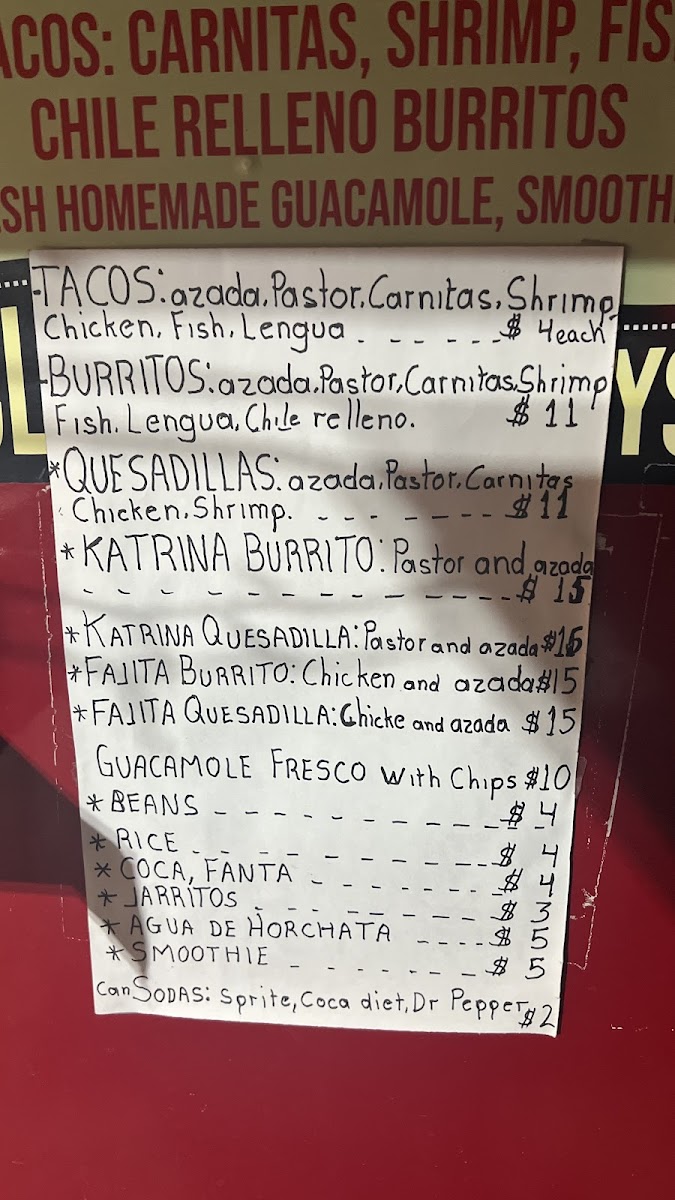 ACOS: CARNITAS, SHRIMP, FIS
CHILE RELLENO BURRITOS
SH HOMEMADE GUACAMOLE, SMOOTH
-TACOS: azada, Pastor, Carnitas, Shrimp
Chicken, Fish, Lengua - - - - - - $ 4 each
-BURRITOS: azada, Pastor, Carnitas, Shrimp
Fish, Lengua, Chile relleno. $ 11
*QUESADILLAS: azada, Pastor, Carnitas
Chicken, Shrimp. - - - - - - - $ 11
*KATRINA BURRITO: Pastor and azada
- - - - - - - - - - - - - $ 15
*KATRINA QUESADILLA: Pastor and azada $15
*FAJITA BURRITO: Chicken and azada $15
*FAJITA QUESADILLA: Chicke and azada $15
GUACAMOLE FRESCO with Chips $10
*BEANS - - - - - - - - - - $ 4
*RICE - - - - - - - - - $ 4
*COCA, FANTA - - - - - - - $ 4
*JARRITOS - - - - - - - - $ 3
*AGUA DE HORCHATA - - - - $ 5
*SMOOTHIE - - - - - - $ 5
can SODAS: Sprite, Coca diet, Dr Pepper $2